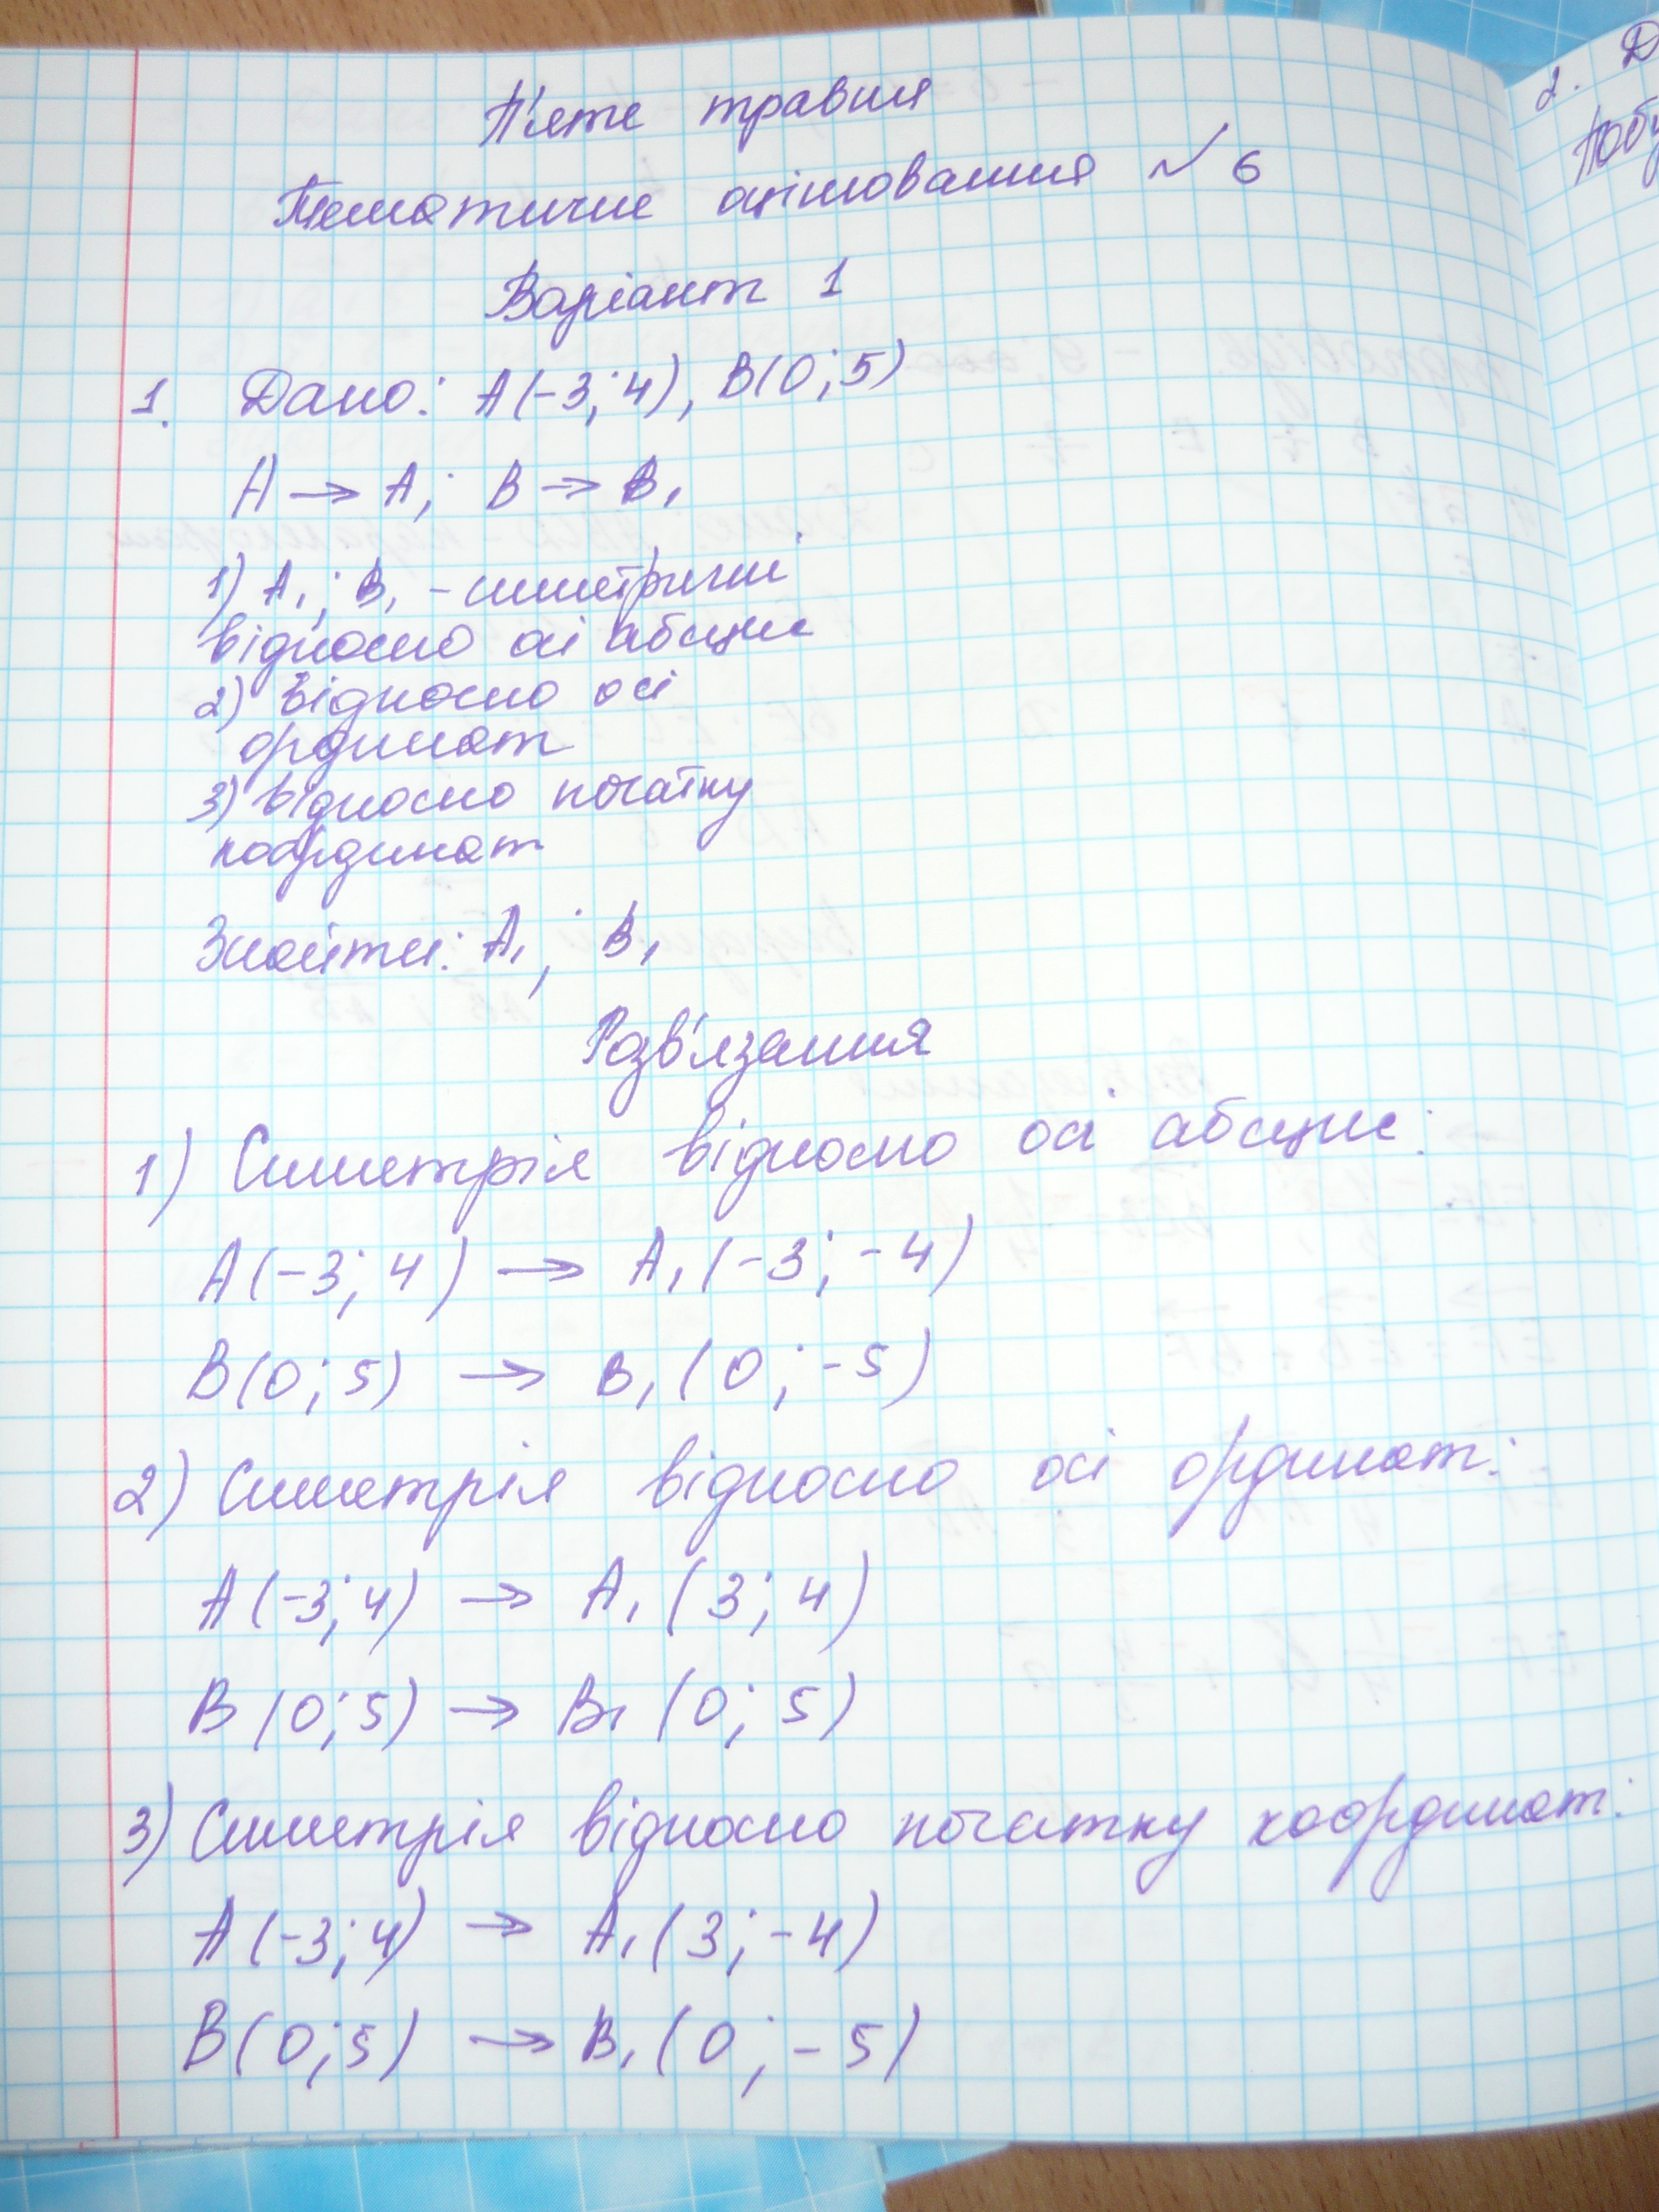 П'яте травня
Тематичне оцінювання № 6
Варіант 1
1. Дано: A(-3; 4), B(0; 5)
A → A₁ B → B₁
1) A₁; B₁ - симетричні
відносно осі абсцис
2) відносно осі
ординат
3) відносно початку
координат
Знайти: A₁; B₁
Розв'язання
1) Симетрія відносно осі абсцис:
A(-3; 4) → A₁(-3; -4)
B(0; 5) → B₁(0; -5)
2) Симетрія відносно осі ординат:
A(-3; 4) → A₁(3; 4)
B(0; 5) → B₁(0; 5)
3) Симетрія відносно початку координат:
A(-3; 4) → A₁(3; -4)
B(0; 5) → B₁(0; -5)
2. Д
Побу